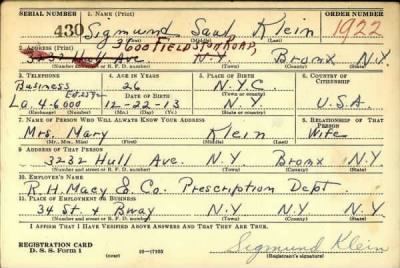 SERIAL NUMBER 1. NAME (Print) ORDER NUMBER
430 Sigmund Saul Klein 1922
3600 FIELDSTON ROAD,
2. ADDRESS (Print)
3232 Hull Ave. N.Y. Bronx N.Y.
(Number and street or R. F. D. number) (Town) (County) (State)
3. TELEPHONE 4. AGE IN YEARS 5. PLACE OF BIRTH 6. COUNTRY OF CITIZENSHIP
Business 26 N.Y.C.
DATE OF BIRTH (Town or county)
La. 4-6000 12-22-13 N.Y. U.S.A.
(Exchange) (Number) (Mo.) (Day) (Yr.) (State or country)
7. NAME OF PERSON WHO WILL ALWAYS KNOW YOUR ADDRESS 8. RELATIONSHIP OF THAT PERSON
Mrs. Mary Klein Wife
(Mr., Mrs., Miss) (First) (Middle) (Last)
9. ADDRESS OF THAT PERSON
3232 Hull Ave. N.Y. Bronx N.Y.
(Number and street or R. F. D. number) (Town) (County) (State)
10. EMPLOYER'S NAME
R.H. Macy & Co. Prescription Dept
11. PLACE OF EMPLOYMENT OR BUSINESS
34 St. & Bway N.Y. N.Y. N.Y.
(Number and street or R. F. D. number) (Town) (County) (State)
I AFFIRM THAT I HAVE VERIFIED ABOVE ANSWERS AND THAT THEY ARE TRUE.
REGISTRATION CARD
D. S. S. Form 1 16—17105 Sigmund Klein
(Registrant's signature)